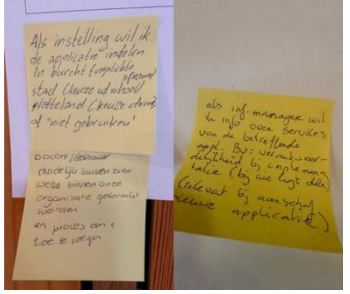 Als instelling wil ik
de applicatie indelen
in burcht (verplichte afname)
stad (keuze uit school
platteland (keuze
of "niet gebruiken"
Docent/gebruiker
duidelijk kunnen zien
welke binnen onze
organisatie gebruikt
worden
en proces om +
toe te voegen
als inf. manager wil
ik info over services
van de betreffende
appl. Bv: verantwoor-
delijkheid bij implemen-
tatie (bij wie ligt die)
(relevant bij aanschaf
nieuwe applicatie)